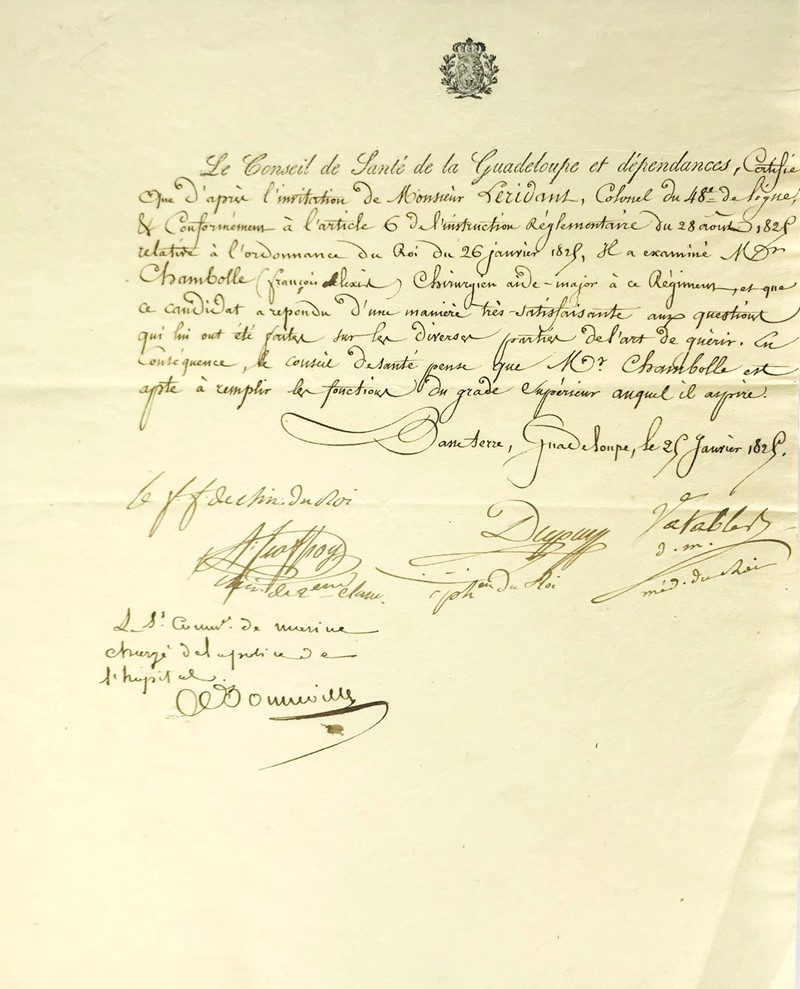 Le Conseil de Santé de la Guadeloupe et dépendances, Certifie
Que d'après l'invitation de Monsieur Léridant, Colonel du 48e de ligne,
& Conformément à l'article 6 de l'instruction Réglementaire du 28 août 1825
relative à l'ordonnance du Roi du 26 janvier 1825, Il a examiné Mr
Chambolle (françois alexis) Chirurgien aide-major à ce Régiment, et que
ce candidat a repondu d'une manière très-satisfaisante aux questions
qui lui ont été faites sur les diverses parties de l'art de guérir. En
Conséquence, le conseil de santé pense que Mr Chambolle est
apte à remplir les fonctions du grade Supérieur auquel il aspire.
Basse terre, Guadeloupe, le 25 Janvier 1825.
le f. f. de chir. du Roi
Dupuy
Vatable
d. m.
de 2eme classe.
phen du Roi
méd. du Roi
de marine
chargé de la police de
l'hopital.
Bonneville